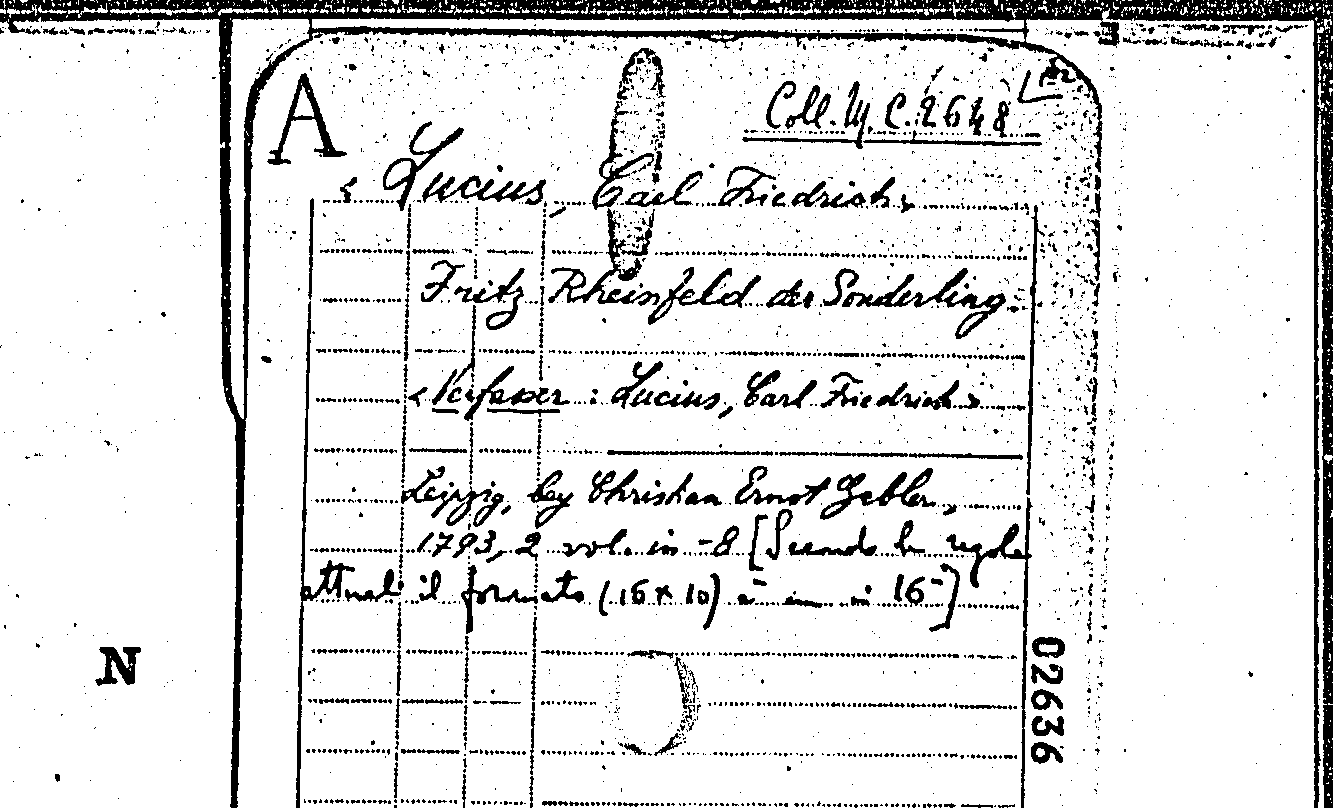 A
Coll. M. C. 2648
< Lucius, Carl Friedrich >
Fritz Rheinfeld der Sonderling.
< Verfasser : Lucius, Carl Friedrich >
Leipzig, bey Christian Ernst Gabler,
1793, 2 vol. in -8 [Secondo le regole
attuali il formato (16 x 10) è in 16-]
N
02636